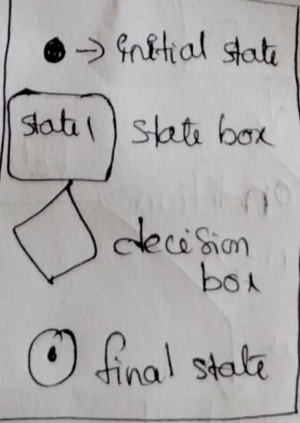 → initial state
state 1 state box
decision
box
final state